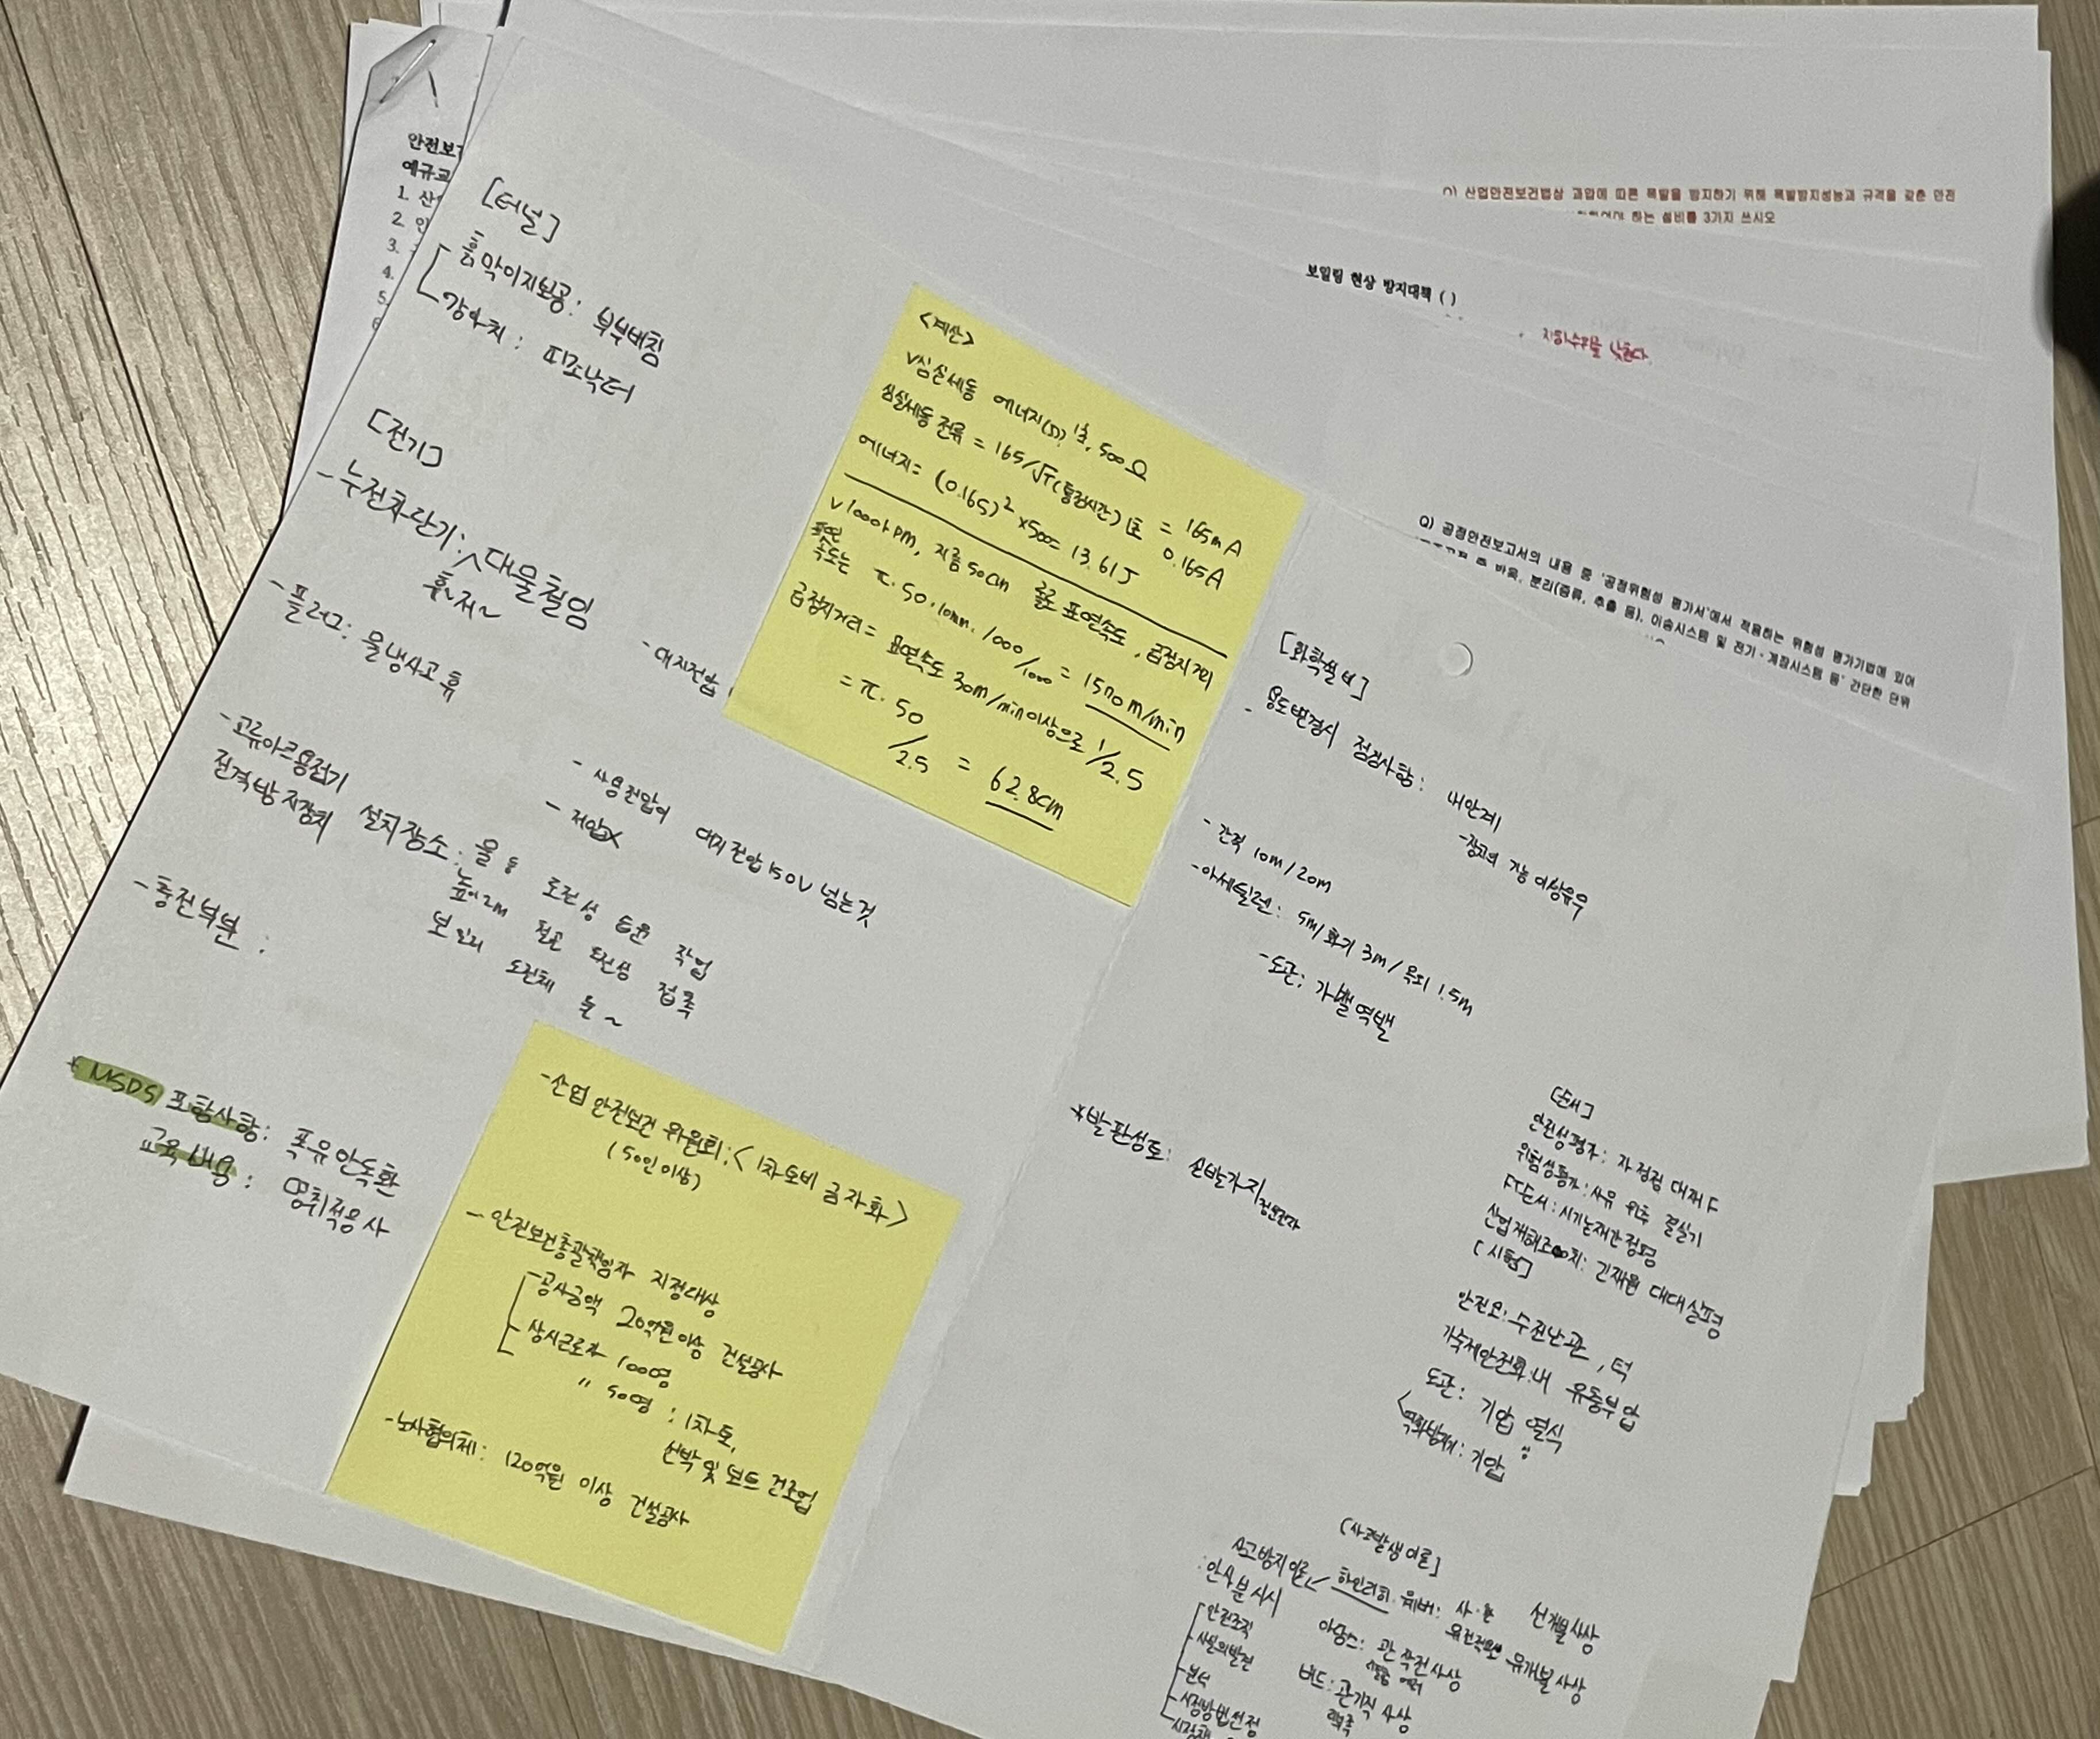 안전보
예규교
1. 산
2. 안
3.
4.
5.
6
[터널]
흙막이지보공: 부부버침
강아치: 피조낙터
[전기]
- 누전차단기: 대물철임
휴~저~
- 플러그: 물냉사고휴
- 대지전압
- 사용전압이 대지전압 150V 넘는것
- 저압X
- 교류아크용접기
전격방지장치 설치장소: 물 등 도전성 작업
높이 2m 철골 도전성 접촉
보일러 도전체 는~
- 충전부분:
* MSDS 포함사항: 폭유안독환
교육내용: 명취적응사
<계산>
V심실세동 에너지(J)? 1초, 500Ω
심실세동 전류 = 165/√T(통전시간) 1초 = 165mA
0.165A
에너지 = (0.165)² x500= 13.61J
V 1000rpm, 지름 50cm 롤로 표면속도, 급정지거리
표면
속도는 π. 50. 10mm. 1000/1000 = 1570 m/min
급정지거리 = 표면속도 30m/min이상으로 1/2.5
= π. 50/2.5 = 62.8cm
- 산업안전보건 위원회: <1차토비 금자화>
(50인이상)
- 안전보건총괄책임자 지정대상
- 공사금액 20억원이상 건설공사
- 상시근로자 100명
" 50명 : 1차·토,
선박 및 보트 건조업
- 노사협의체: 120억원 이상 건설공사
Q) 산업안전보건법상 과압에 따른 폭발을 방지하기 위해 폭발방지성능과 규격을 갖춘 안전
하는 설비를 3가지 쓰시오
보일링 현상 방지대책 ( )
지하수위를 낮춘다
Q) 공정안전보고서의 내용 중 '공정위험성 평가서'에서 적용하는 위험성 평가기법에 있어
반응, 분리(증류, 추출 등), 이송시스템 및 전기·계장시스템 등' 간단한 단위
[화학설비]
- 용도변경시 점검사항: 내안계
- 장치의 기능 이상유무
- 간격 10m/20m
- 아세틸렌: 5m/화기 3m/옥외 1.5m
- 도관: 가밸역밸
*발판성토: 손발는가지
[순서]
안전성평가: 자정정 대재F
위험성평가: 사유 위추 결실기
FT순서: 시기논재간정평
산업재해조 치: 긴재원 대대실평
[시험]
안전모: 수전난관, 턱
가죽제안전화: 내 유동부압
도관: 기압 열식
역화방지: 기압
[사고발생이론]
사고방지이론 하인리히. 웨버: 사·유 선개불사상
: 안사분시시 유전적요 유개불사상
안전조직 아담스: 관 작전사상
사실의발견
분석 버드: 관기직사상
시정방법선정